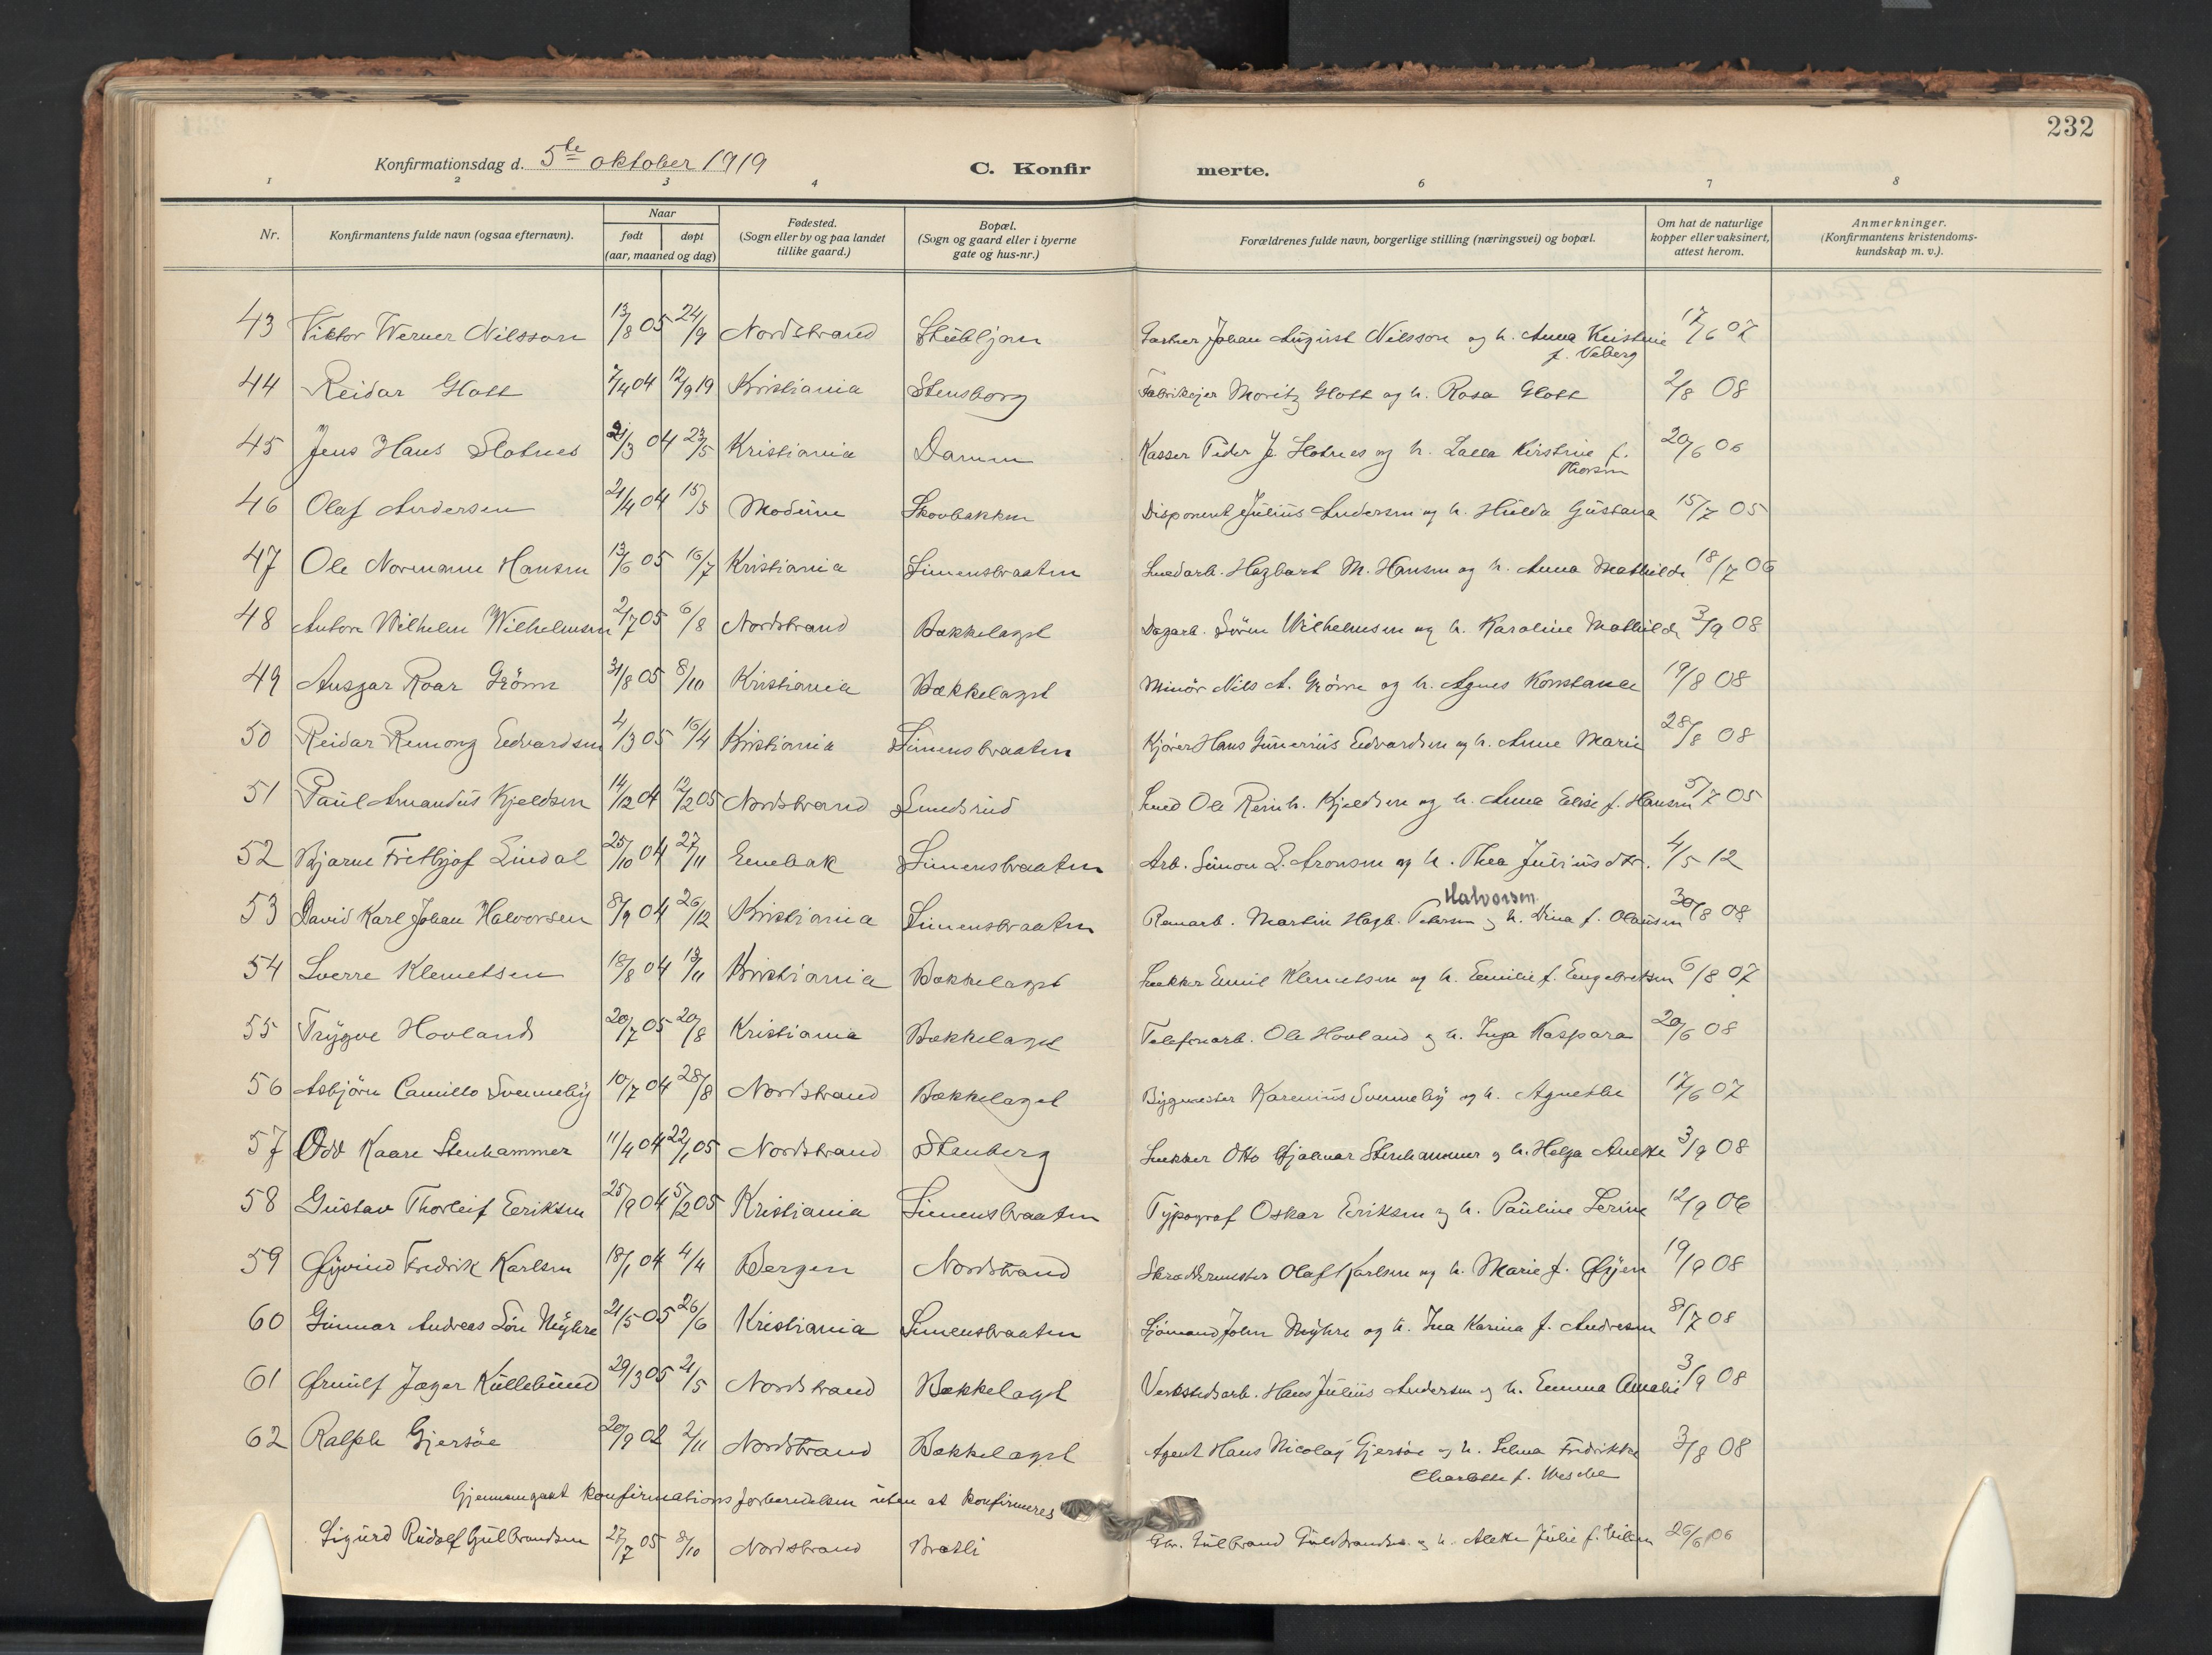 232
Konfirmationsdag d. 5te oktober 1919 C. Konfir merte.
1 2 3 4 6 7 8
Nr. Konfirmantens fulde navn (ogsaa efternavn). Naar født døpt (aar, maaned og dag) Fødested. (Sogn eller by og paa landet tillike gaard.) Bopæl. (Sogn og gaard eller i byerne gate og hus-nr.) Forældrenes fulde navn, borgerlige stilling (næringsvei) og bopæl. Om hat de naturlige kopper eller vaksinert, attest herom. Anmerkninger. (Konfirmantens kristendoms-kundskap m. v.).
43 Viktor Werner Nilsson 13/8 05 24/9 Nordstrand Stubljan Gartner Johan August Nilsson og h. Anna Kristine 17/6 07
f. Veberg
44 Reidar Glott 7/4 04 12/9 19 Kristiania Stensborg Fabrikejer Moritz Glott og h. Rosa Glott 2/8 08
45 Jens Hans Slotnes 21/3 04 23/5 Kristiania Damm Kasser Peder J. Slotnes og h. Lalla Kirstine f. 20/6 06
Thorsen
46 Olaf Andersen 21/4 04 15/5 Modum Skovbakken Disponent Julius Andersen og h. Hulda Gustava 15/7 05
47 Ole Normann Hansen 13/6 05 16/7 Kristiania Simensbraaten Smedarb. Hagbart M. Hansen og h. Anna Mathilde 18/7 06
48 Anton Wilhelm Wilhelmsen 2/7 05 6/8 Nordstrand Bækkelaget Dagarb. Sören Wilhelmsen og h. Karoline Mathilde 3/9 08
49 Ansgar Roar Grönn 31/8 05 8/10 Kristiania Bækkelaget Minör Nils A. Grönn og h. Agnes Konstanse 19/8 08
50 Reidar Remong Edvardsen 4/3 05 16/4 Kristiania Simensbraaten Kjører Hans Gunerius Edvardsen og h. Anne Marie 28/8 08
51 Paul Amandus Kjeldsen 14/12 04 12/2 05 Nordstrand Smedsrud Smed Ole Reinh. Kjeldsen og h. Anna Elise f. Hansen 5/7 05
52 Bjarne Fritbjof Lindal 25/10 04 27/11 Enebak Simensbraaten Arb. Simon L. Aronsen og h. Thea Juliusdtr. 4/5 12
Halvorsen
53 David Karl Johan Halvorsen 8/9 04 26/12 Kristiania Simensbraaten Remarb. Martin Hagb. Petersen og h. Dina f. Olausen 30/8 08
54 Sverre Klemetsen 18/8 04 13/11 Kristiania Bækkelaget Snekker Emil Klemetsen og h. Emilie f. Engebretsen 6/8 07
55 Trygve Hovland 20/7 05 20/8 Kristiania Bækkelaget Telefonarb. Ole Hovland og h. Inga Kaspara 20/6 08
56 Asbjörn Camillo Svenneby 10/7 04 28/8 Nordstrand Bækkelaget Bygmester Karenius Svenneby og h. Agnethe 17/6 07
57 Odd Kaare Stenhammer 11/4 04 22/1 05 Nordstrand Stenberg Snekker Otto Hjalmar Stenhammer og h. Helga Anette 3/9 08
58 Gustav Thorleif Eriksen 25/9 04 5/2 05 Kristiania Simensbraaten Typograf Oskar Eriksen og h. Pauline Serine 12/9 06
59 Øyvind Fredrik Karlsen 18/1 04 4/4 Bergen Nordstrand Skræddermester Olaf Karlsen og h. Marie f. Øyen 19/9 08
60 Gunnar Andreas Lön Myhre 21/5 05 26/6 Kristiania Simensbraaten Sjömand John Myhre og h. Ina Karina f. Andresen 8/7 08
61 Ørnulf Jæger Kullebund 29/3 05 21/5 Nordstrand Bækkelaget Verkstedsarb. Hans Julius Andersen og h. Emma Amalie 3/9 08
62 Ralph Gjersöe 20/9 02 2/11 Nordstrand Bækkelaget Agent Hans Nicolay Gjersöe og h. Selma Fredrikke 3/8 08
Charlotte f. Wesche
Gjennemgaat konfirmationsforberedelsen uten at konfirmeres
Sigurd Rudolf Gulbrandsen 27/7 05 8/10 Nordstrand Bratli Gbr. Gulbrand Gulbrandsen og h. Alette Julie f. Nilsen 26/6 06